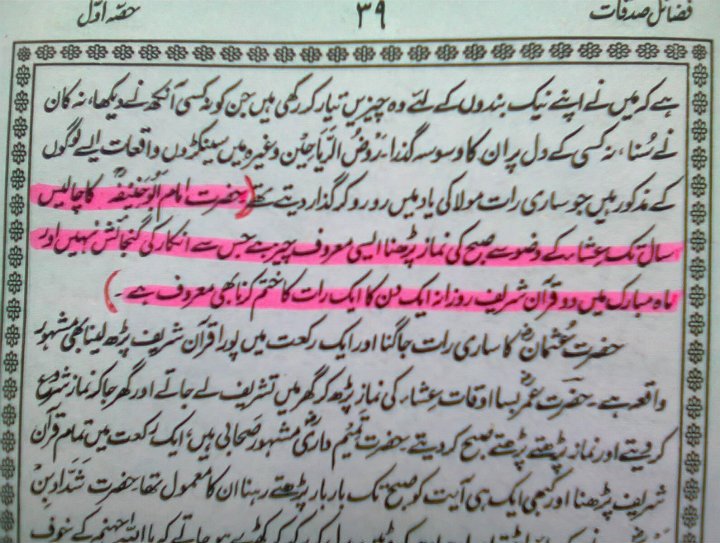 فضائل صدقات ۳۹ حصّہ اوّل
ہے کہ میں نے اپنے نیک بندوں کے لئے وہ چیزیں تیار کر رکھی ہیں جن کو نہ کسی آنکھ نے دیکھا، نہ کان
نے سُنا، نہ کسی کے دل پر ان کا وسوسہ گذرا۔ رَوْضُ الرَّیَاحِیْن وغیرہ میں سینکڑوں واقعات ایسے لوگوں
کے مذکور ہیں جو ساری رات مولا کی یاد میں رو رو کر گذار دیتے تھے (حضرت امام ابُوحَنِیْفَہ ؒ کا چالیس
سال تک عِشاء کے وضو سے صبح کی نماز پڑھنا ایسی معروف چیز ہے جس سے انکار کی گنجائش نہیں اور
ماہ مبارک میں دو قرآن شریف روزانہ ایک دن کا ایک رات کا ختم کرنا بھی معروف ہے۔)
حضرت عُثمان ؓ کا ساری رات جاگنا اور ایک رکعت میں پورا قرآن شریف پڑھ لینا بھی مشہور
واقعہ ہے۔ حضرت عُمَر ؓ بسا اوقات عِشاء کی نماز پڑھ کر گھر میں تشریف لے جاتے اور گھر جا کر نماز شروع
کر دیتے اور نماز پڑھتے پڑھتے صبح کر دیتے۔ حضرت تَمِیْم داری ؓ مشہور صَحابی ہیں؛ ایک رکعت میں تمام قرآن
شریف پڑھنا اور کبھی ایک ہی آیت کو صبح تک بار بار پڑھتے رہنا ان کا معمول تھا۔ حضرت شَدّاد بِنْ
کھڑے ہو جاتے کہ یا اللہ جہنم کے خوف